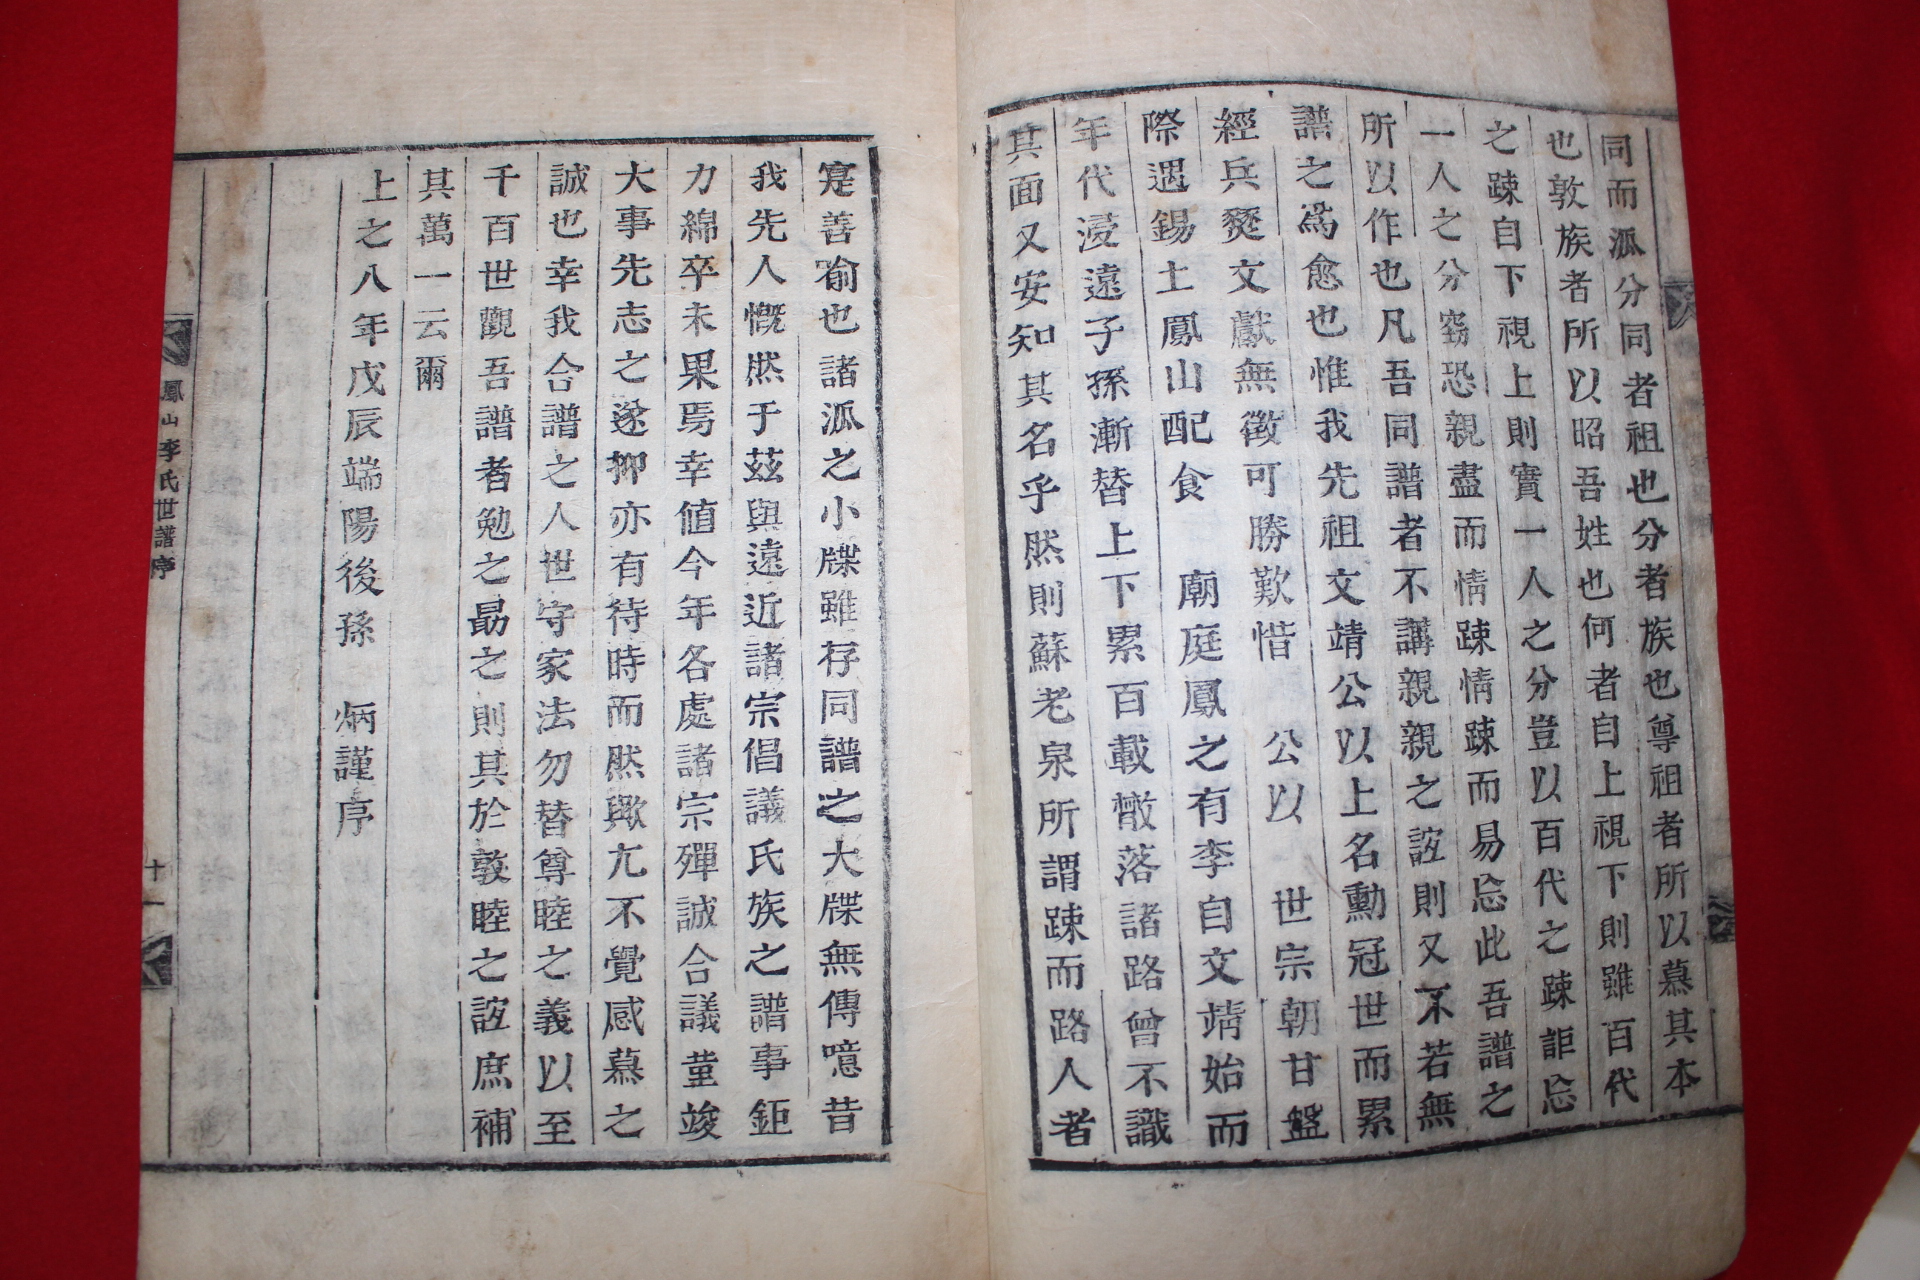 同而派分同者祖也分者族也尊祖者所以慕其本
也敦族者所以昭吾姓也何者自上視下則雖百代
之踈自下視上則實一人之分豈以百代之踈詎忘
一人之分窃恐親盡而情踈情踈而易忘此吾譜之
所以作也凡吾同譜者不講親親之誼則又不若無
譜之爲愈也惟我先祖文靖公以上名勳冠世而累
經兵燹文獻無徵可勝歎惜 公以 世宗朝甘盤
際遇錫土鳳山配食 廟庭鳳之有李自文靖始而
年代浸遠子孫漸替上下累百載散落諸路曾不識
其面又安知其名乎然則蘇老泉所謂踈而路人者
寔善喻也諸派之小牒雖存同譜之大牒無傳噫昔
我先人慨然于茲與遠近諸宗倡議氏族之譜事鉅
力綿卒未果焉幸値今年各處諸宗殫誠合議董竣
大事先志之遂抑亦有待時而然歟亢不覺感慕之
誠也幸我合譜之人世守家法勿替尊睦之義以至
千百世觀吾譜者勉之勗之則其於敦睦之誼庶補
其萬一云爾
上之八年戊辰端陽後孫 炳謹序
鳳山李氏世譜序 十一